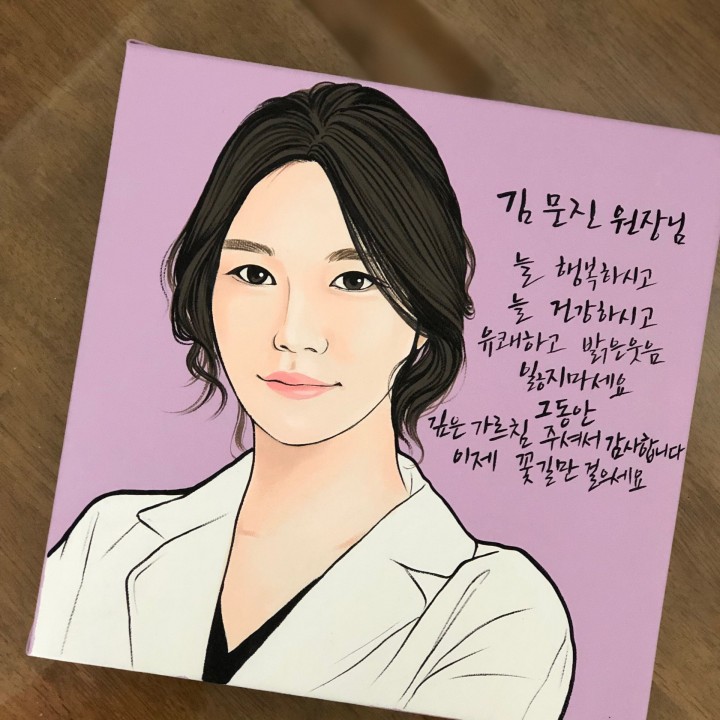 김 문진 원장님
늘 행복하시고
늘 건강하시고
유쾌하고 밝은웃음
잃지마세요
그동안
깊은 가르침 주셔서 감사합니다
이제 꽃길만 걸으세요